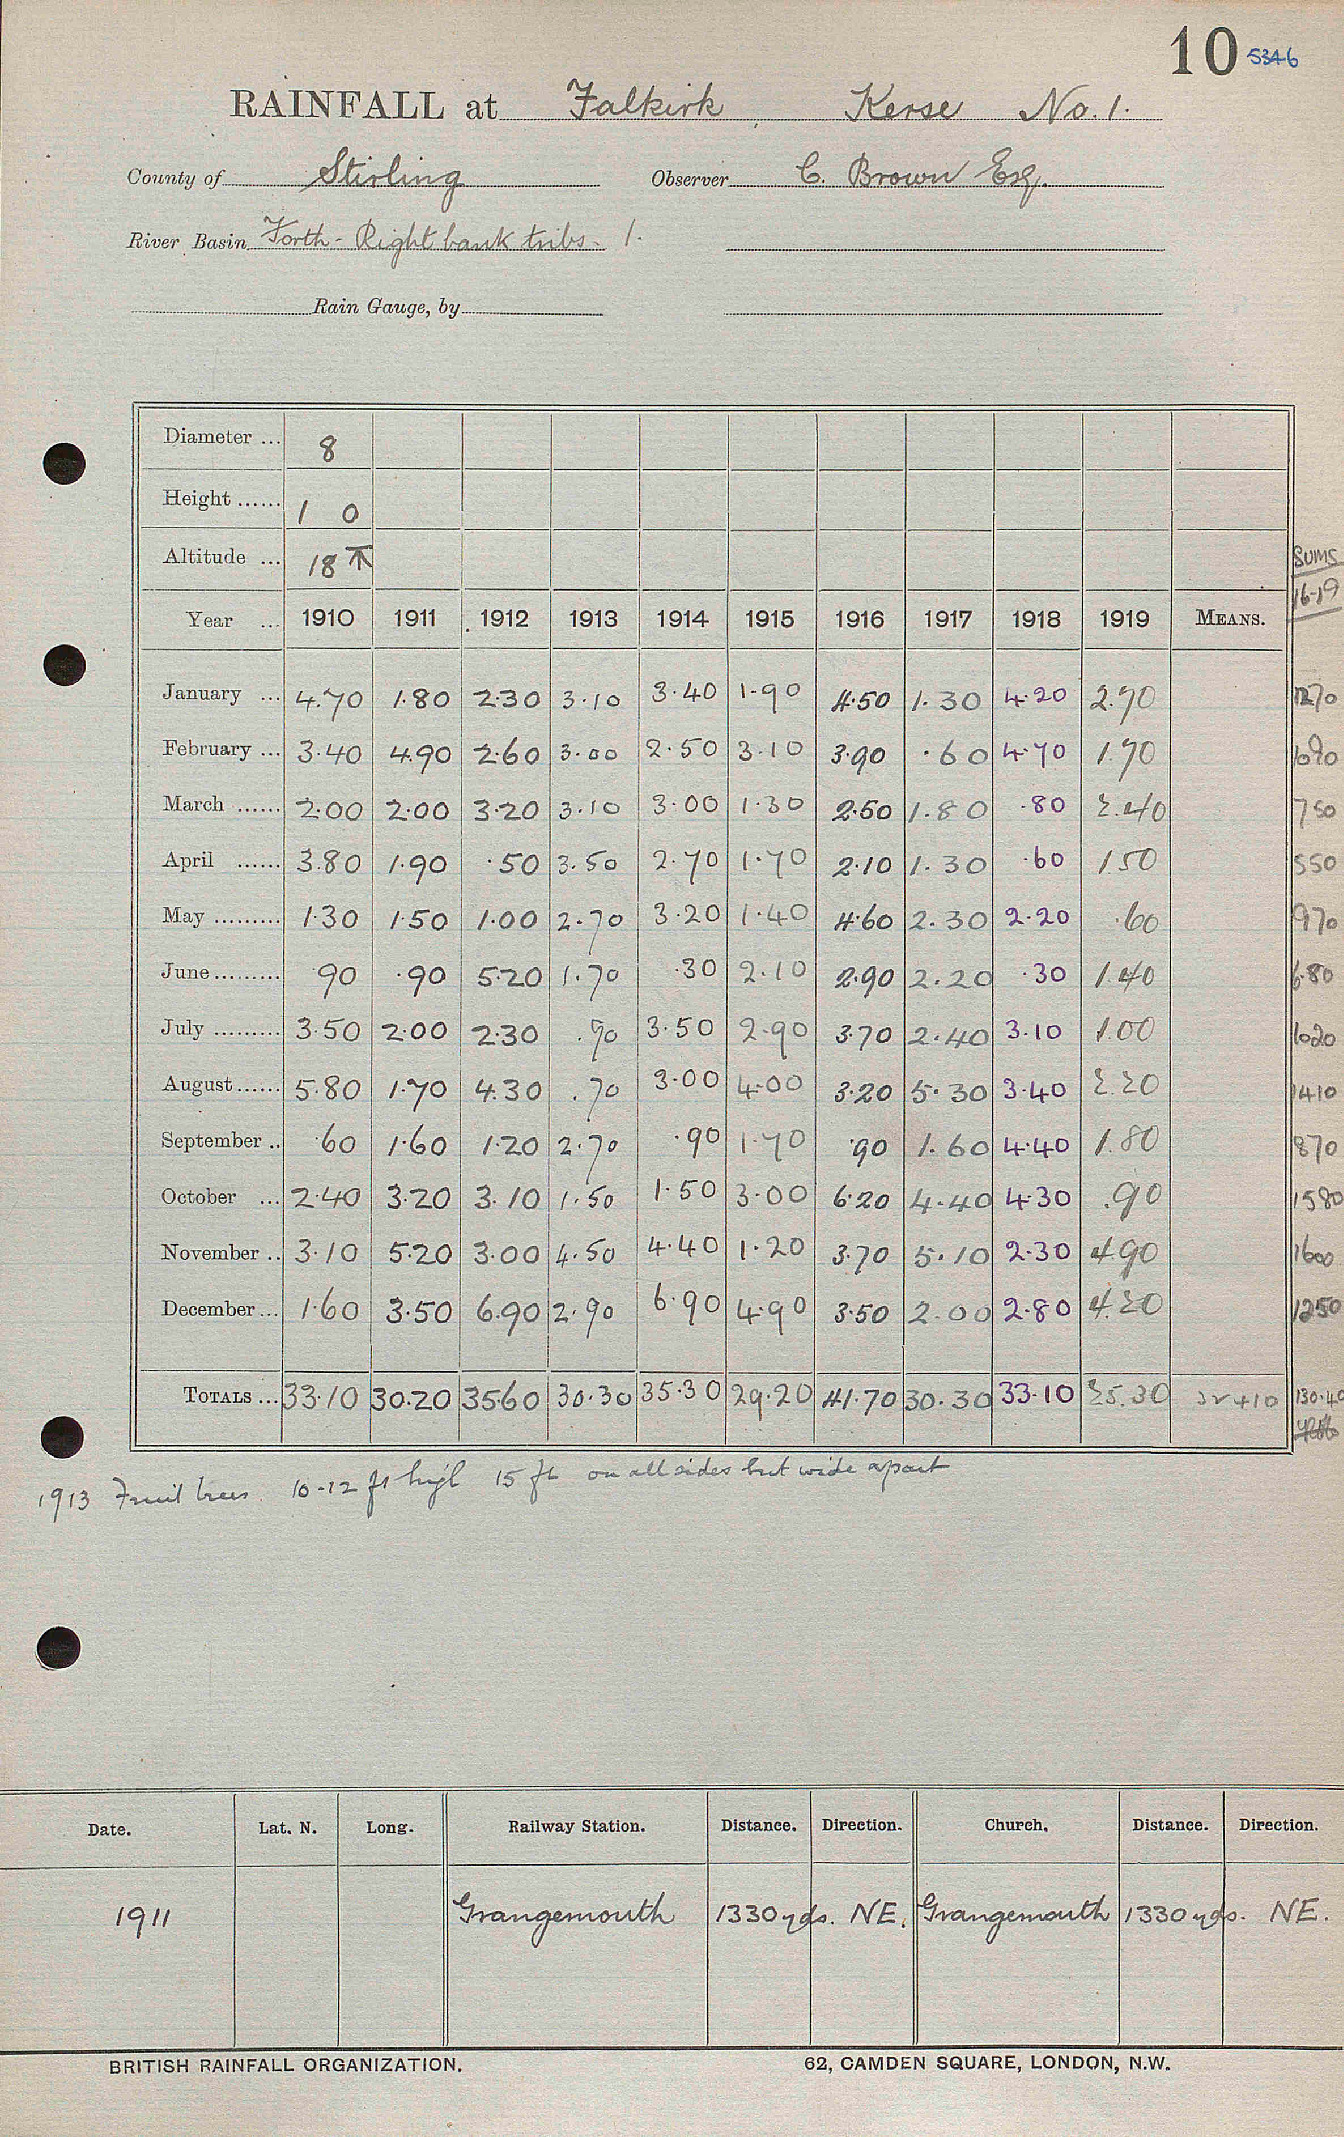 10 5346
RAINFALL at Falkirk Kerse No. 1.
County of Stirling Observer C. Brown Esq.
River Basin Forth - Right bank tribs. 1.
Rain Gauge, by
Diameter ... 8
Height ...... 1 0
Altitude ... 18 T
SUMS
Year ... 1910 1911 1912 1913 1914 1915 1916 1917 1918 1919 MEANS. 16-19
January ... 4.70 1.80 2.30 3.10 3.40 1.90 4.50 1.30 4.20 2.70 1270
February ... 3.40 4.90 2.60 3.00 2.50 3.10 3.90 .60 4.70 1.70 1090
March ...... 2.00 2.00 3.20 3.10 3.00 1.30 2.50 1.80 .80 2.40 750
April ...... 3.80 1.90 .50 3.50 2.70 1.70 2.10 1.30 .60 1.50 550
May ......... 1.30 1.50 1.00 2.70 3.20 1.40 4.60 2.30 2.20 .60 970
June ......... .90 .90 5.20 1.70 .30 2.10 2.90 2.20 .30 1.40 6.80
July ......... 3.50 2.00 2.30 .90 3.50 2.90 3.70 2.40 3.10 1.00 1020
August ...... 5.80 1.70 4.30 .70 3.00 4.00 3.20 5.30 3.40 2.20 1410
September .. .60 1.60 1.20 2.70 .90 1.70 .90 1.60 4.40 1.80 870
October ... 2.40 3.20 3.10 1.50 1.50 3.00 6.20 4.40 4.30 .90 1580
November .. 3.10 5.20 3.00 4.50 4.40 1.20 3.70 5.10 2.30 4.90 1600
December ... 1.60 3.50 6.90 2.90 6.90 4.90 3.50 2.00 2.80 4.20 1250
TOTALS ... 33.10 30.20 35.60 30.30 35.30 29.20 41.70 30.30 33.10 25.30 32410 130.40
1913 Fruit trees 10-12 ft high 15 ft on all sides but wide apart
Date. Lat. N. Long. Railway Station. Distance. Direction. Church. Distance. Direction.
1911 Grangemouth 1330 yds. NE. Grangemouth 1330 yds. NE.
BRITISH RAINFALL ORGANIZATION. 62, CAMDEN SQUARE, LONDON, N.W.